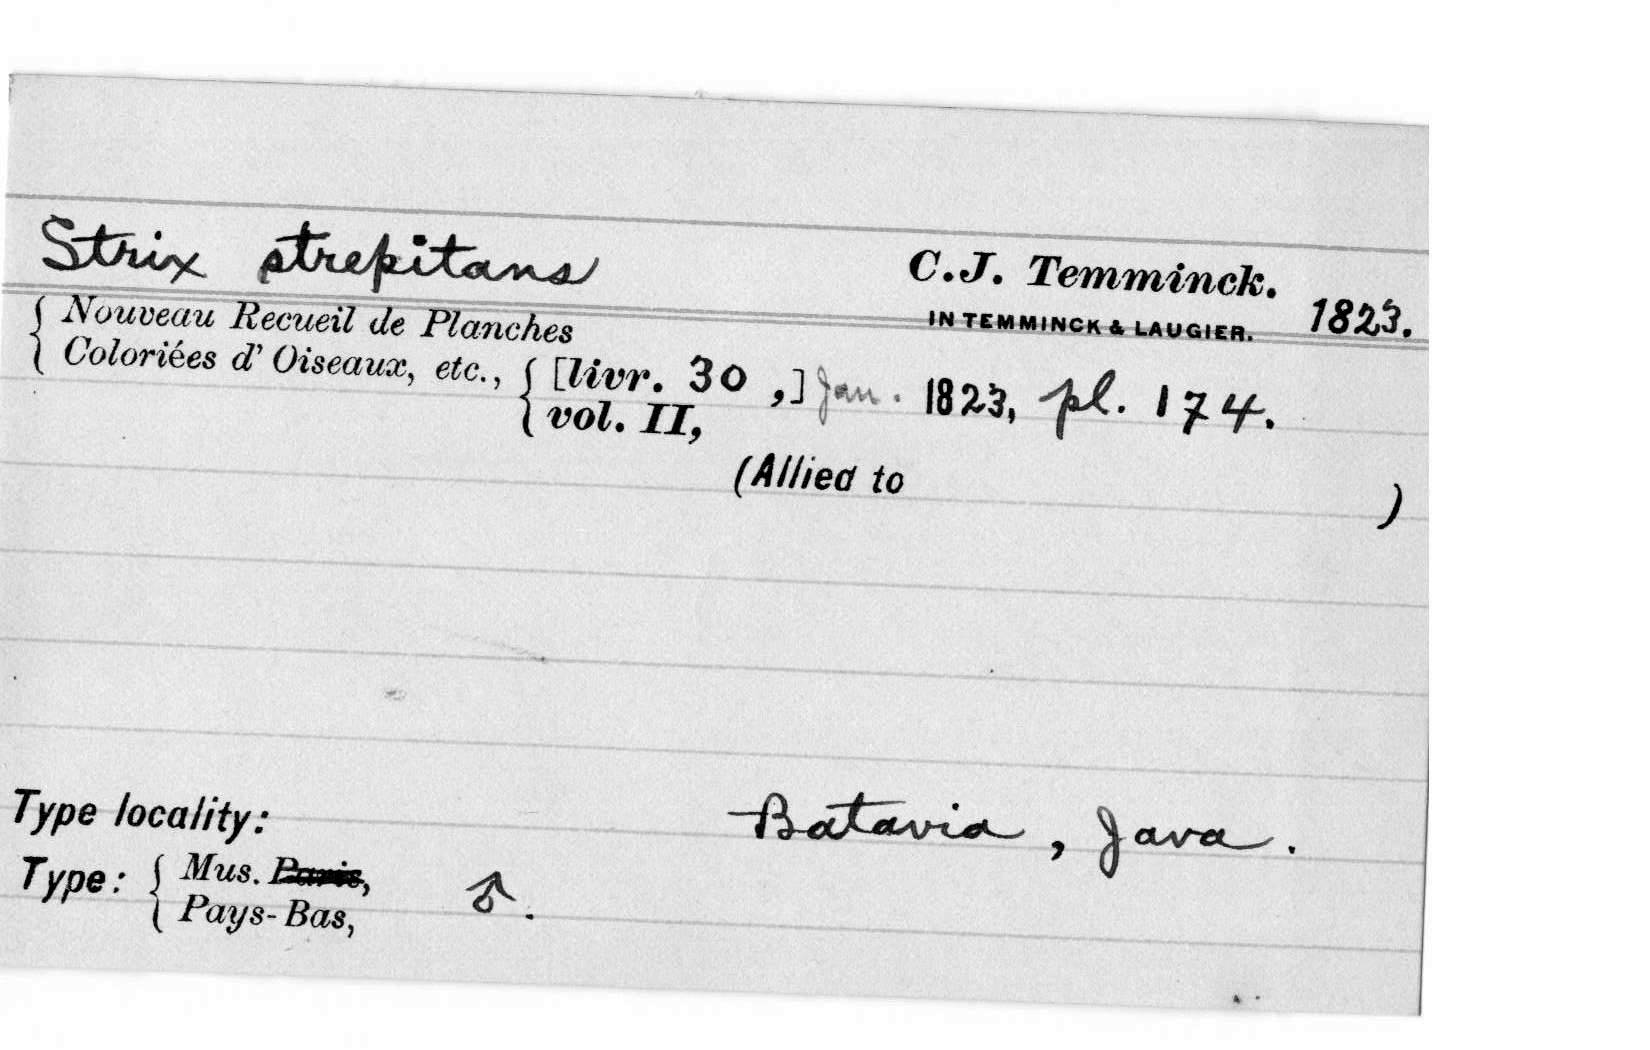 Strix strepitans C.J. Temminck. 1823.
IN TEMMINCK & LAUGIER.
{ Nouveau Recueil de Planches
Coloriées d' Oiseaux, etc., { [livr. 30 ,] Jan. 1823, pl. 174.
vol. II,
(Allied to )
Type locality: Batavia, Java.
Type: { Mus. Paris, ♂.
Pays-Bas,